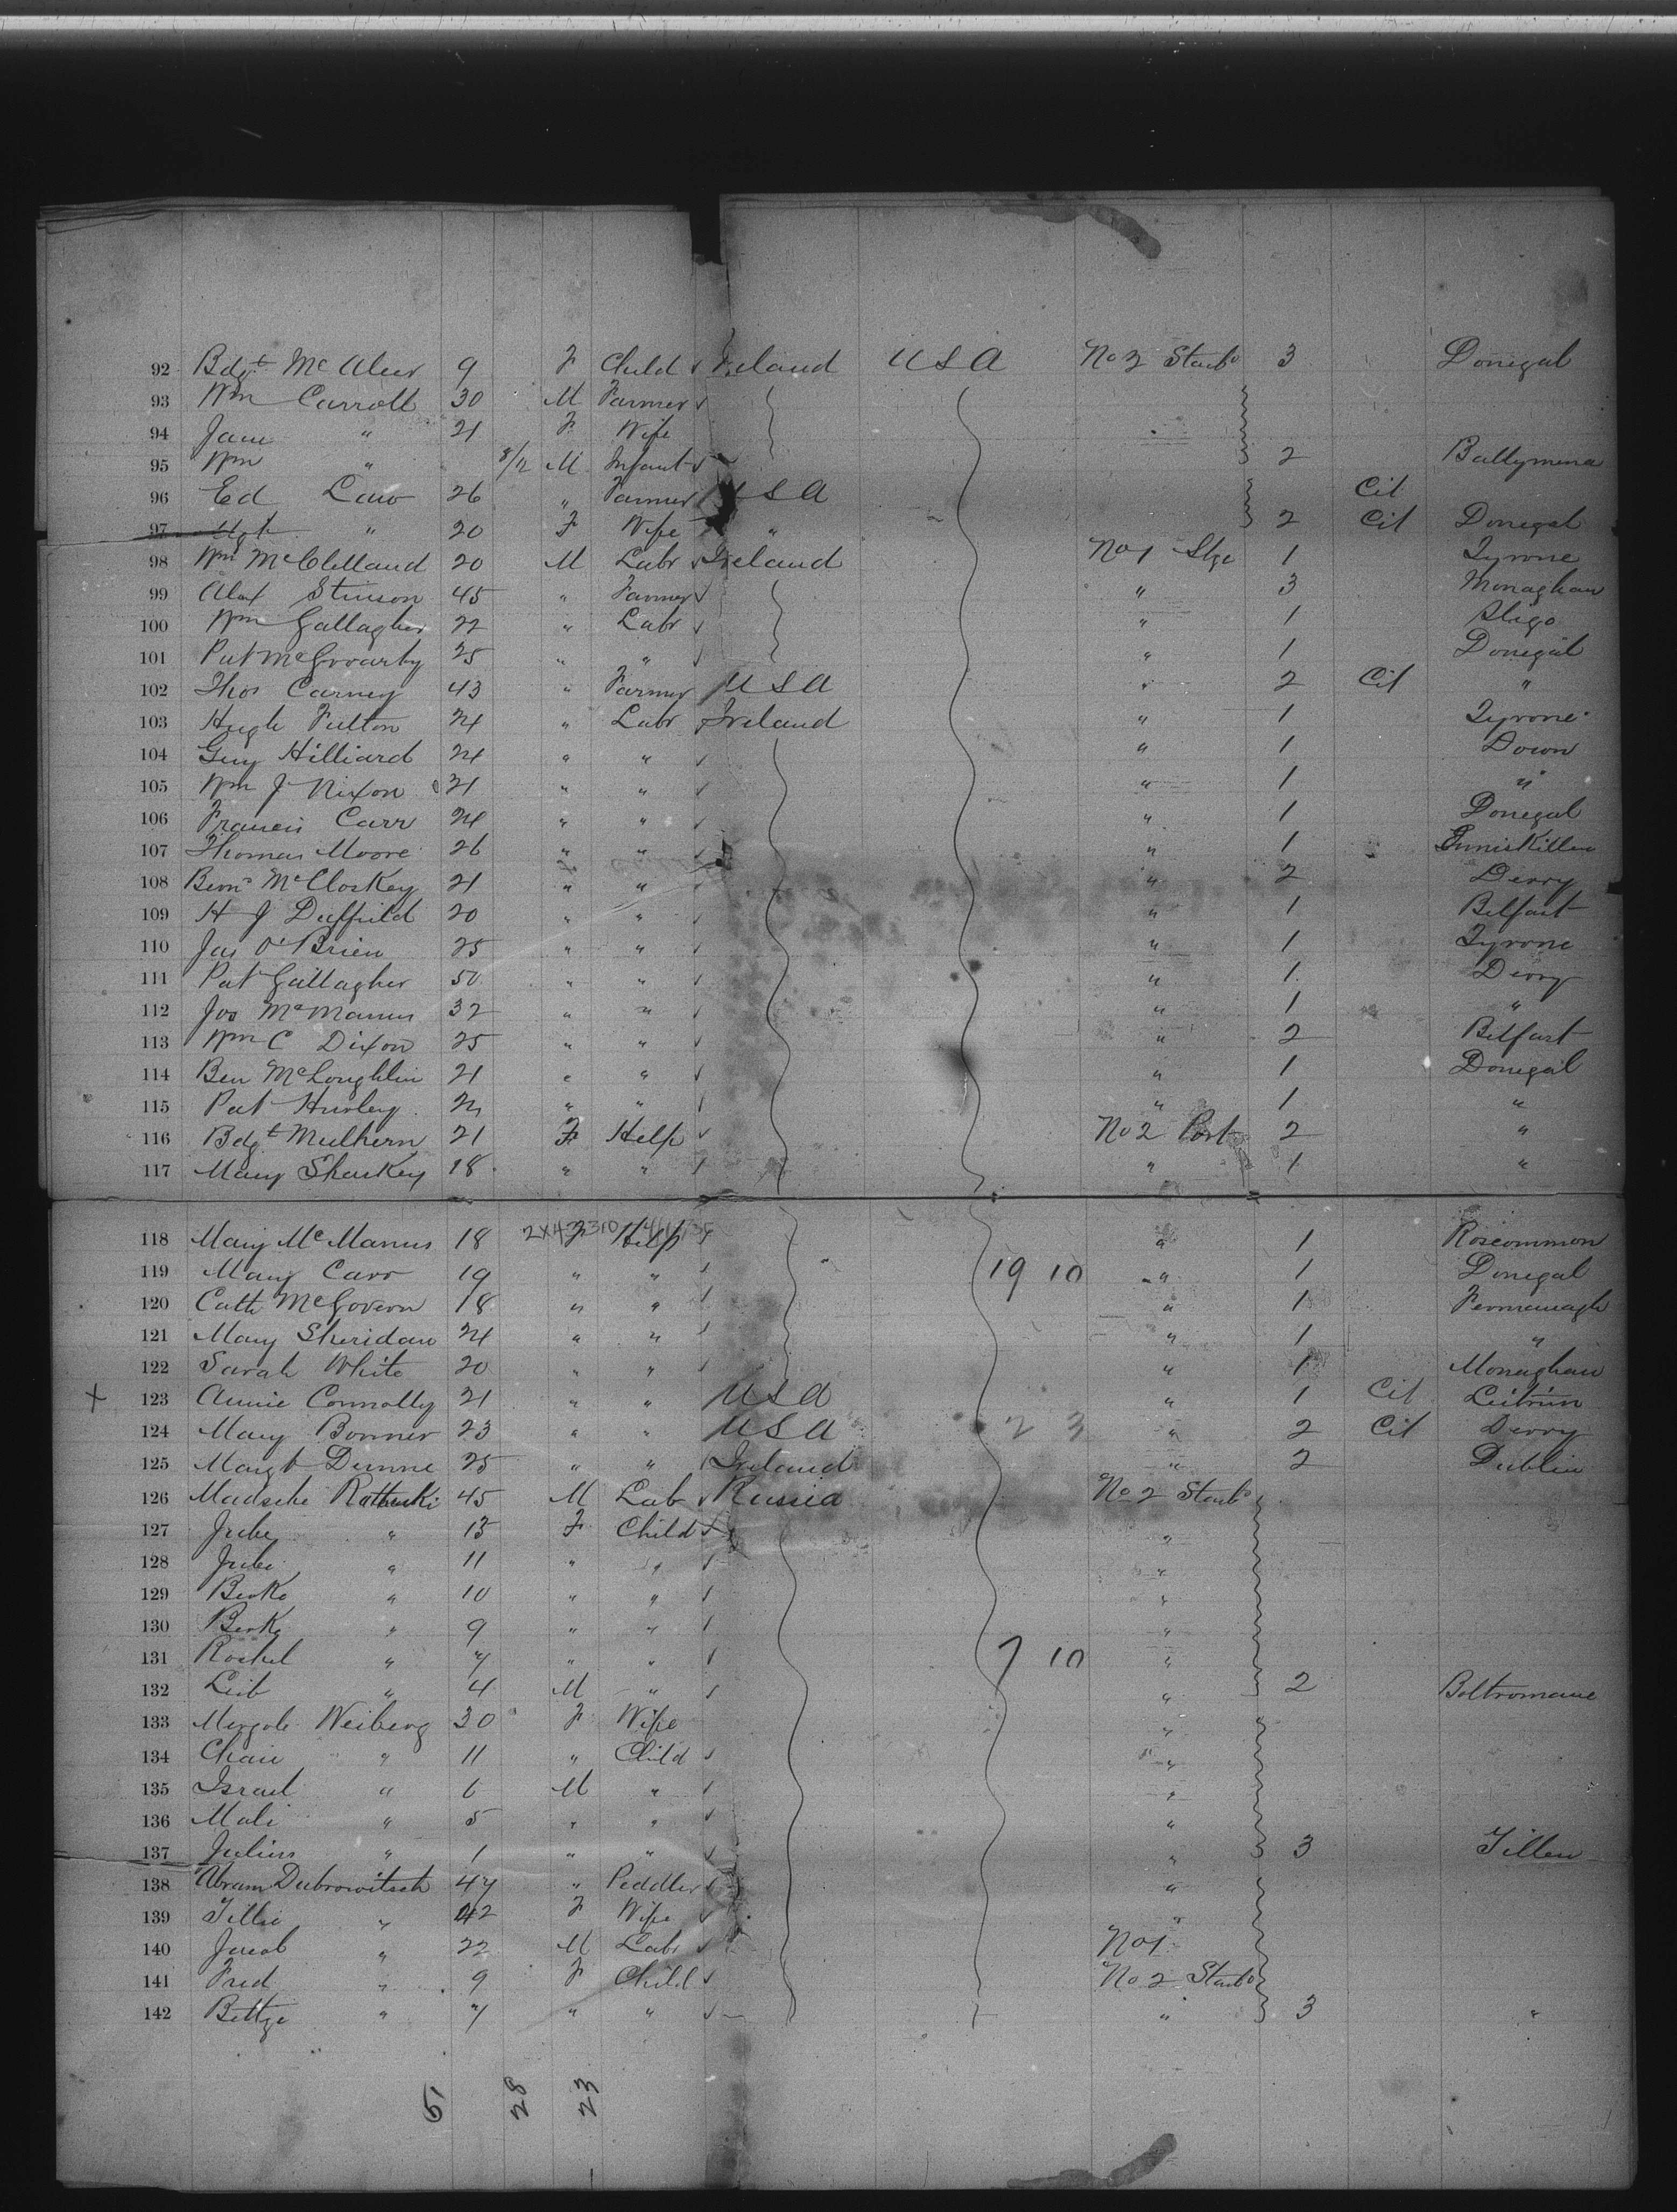 92 Bdgt McAleer 9 F Child Ireland USA No 2 Starb 3 Donegal
93 Wm Carroll 30 M Farmer
94 Jane " 21 F Wife
95 Wm " 8/12 M Infant 2 Ballymena
96 Ed Law 26 " Farmer USA Cit
97 Mgt " 20 F Wife " 2 Cit Donegal
98 Wm McClelland 20 M Labr Ireland No 1 Stge 1 Tyrone
99 Alex Stinson 45 " Farmer " 3 Monaghan
100 Wm Gallagher 22 " Labr " 1 Sligo
101 Pat 25 " " " 1 Donegal
102 Thos Carney 43 " Farmer USA " 2 Cit "
103 Hugh Fulton 24 " Labr Ireland " 1 Tyrone
104 Guy Hilliard 24 " " " 1 Down
105 Wm J Nixon 21 " " " 1 "
106 Francis Carr 24 " " " 1 Donegal
107 Thomas Moore 26 " " " 1 Enniskillen
108 McCloskey 21 " " " 2 Derry
109 H J Duffield 20 " " " 1 Belfast
110 Jas O'Brien 25 " " " 1 Tyrone
111 Pat Gallagher 50 " " " 1 Derry
112 Jos McManus 32 " " " 1 "
113 Wm C Dixon 25 " " " 2 Belfast
114 Ben McLoughlin 21 " " " 1 Donegal
115 Pat Hurley " " " 1 "
116 Bdgt Mulhern 21 F Help No 2 Port 2 "
117 Mary Sharkey 18 " " " 1 "
118 Mary McManus 18 F Help " 1 Roscommon
119 Mary Carr 19 " " 19 10 " 1 Donegal
120 Cath McGovern 18 " " " 1 Fermanagh
121 Mary Sheridan 24 " " " 1 "
122 Sarah White 20 " " " 1 Monaghan
X 123 Annie Connolly 21 " " USA " 1 Cit Leitrim
124 Mary Bonner 23 " " USA 2 3 " 2 Cit Derry
125 Margt Dunne 25 " " Ireland " 2 Dublin
126 Madsche 45 M Lab Russia No 2 Starb
127 Jube " 13 F Child "
128 Jube " 11 " " "
129 Berko " 10 " " "
130 Berko " 9 " " "
131 Roshel " 7 " " 7 10 "
132 Leib " 4 M " " 2 Boltromane
133 Weiberg 30 F Wife "
134 Chaie " 11 " Child "
135 Israel " 6 M " "
136 Mali " 5 " " "
137 Julius " 1 " " " 3 Tillen
138 Abram Dubrowitsch 47 " Peddler "
139 Tillie " 42 F Wife "
140 Jacob " 22 M Labr No 1
141 Fred " 9 F Child No 2 Starb
142 Bettge " 7 " " " 3 "
51 28 23